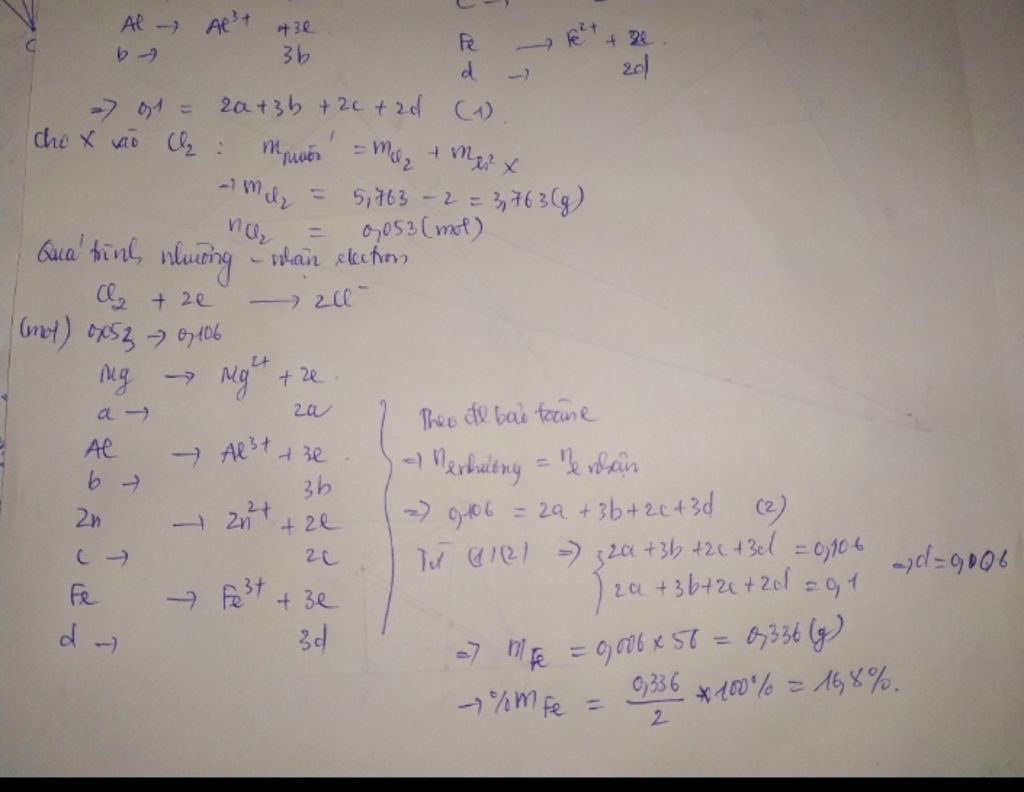 Al → Al³⁺ + 3e
b → 3b
Fe → Fe²⁺ + 2e.
d → 2d
=> 0,1 = 2a + 3b + 2c + 2d (1).
Cho X vào Cl₂ : m muối = m Cl₂ + m X
→ m Cl₂ = 5,763 - 2 = 3,763(g)
n Cl₂ = 0,053(mol)
Quá trình nhường - nhận electron
Cl₂ + 2e → 2Cl⁻
(mol) 0,053 → 0,106
Mg → Mg²⁺ + 2e.
a → 2a
Al → Al³⁺ + 3e.
b → 3b
Zn → Zn²⁺ + 2e
c → 2c
Fe → Fe³⁺ + 3e
d → 3d
Theo đl bảo toàn e
=> n e nhường = n e nhận
=> 0,106 = 2a + 3b + 2c + 3d (2)
Từ (1)(2) => { 2a + 3b + 2c + 3d = 0,106
2a + 3b + 2c + 2d = 0,1
=> d = 0,006
=> m Fe = 0,006 x 56 = 0,336(g)
→ %m Fe = 0,336/2 x 100% = 16,8%.